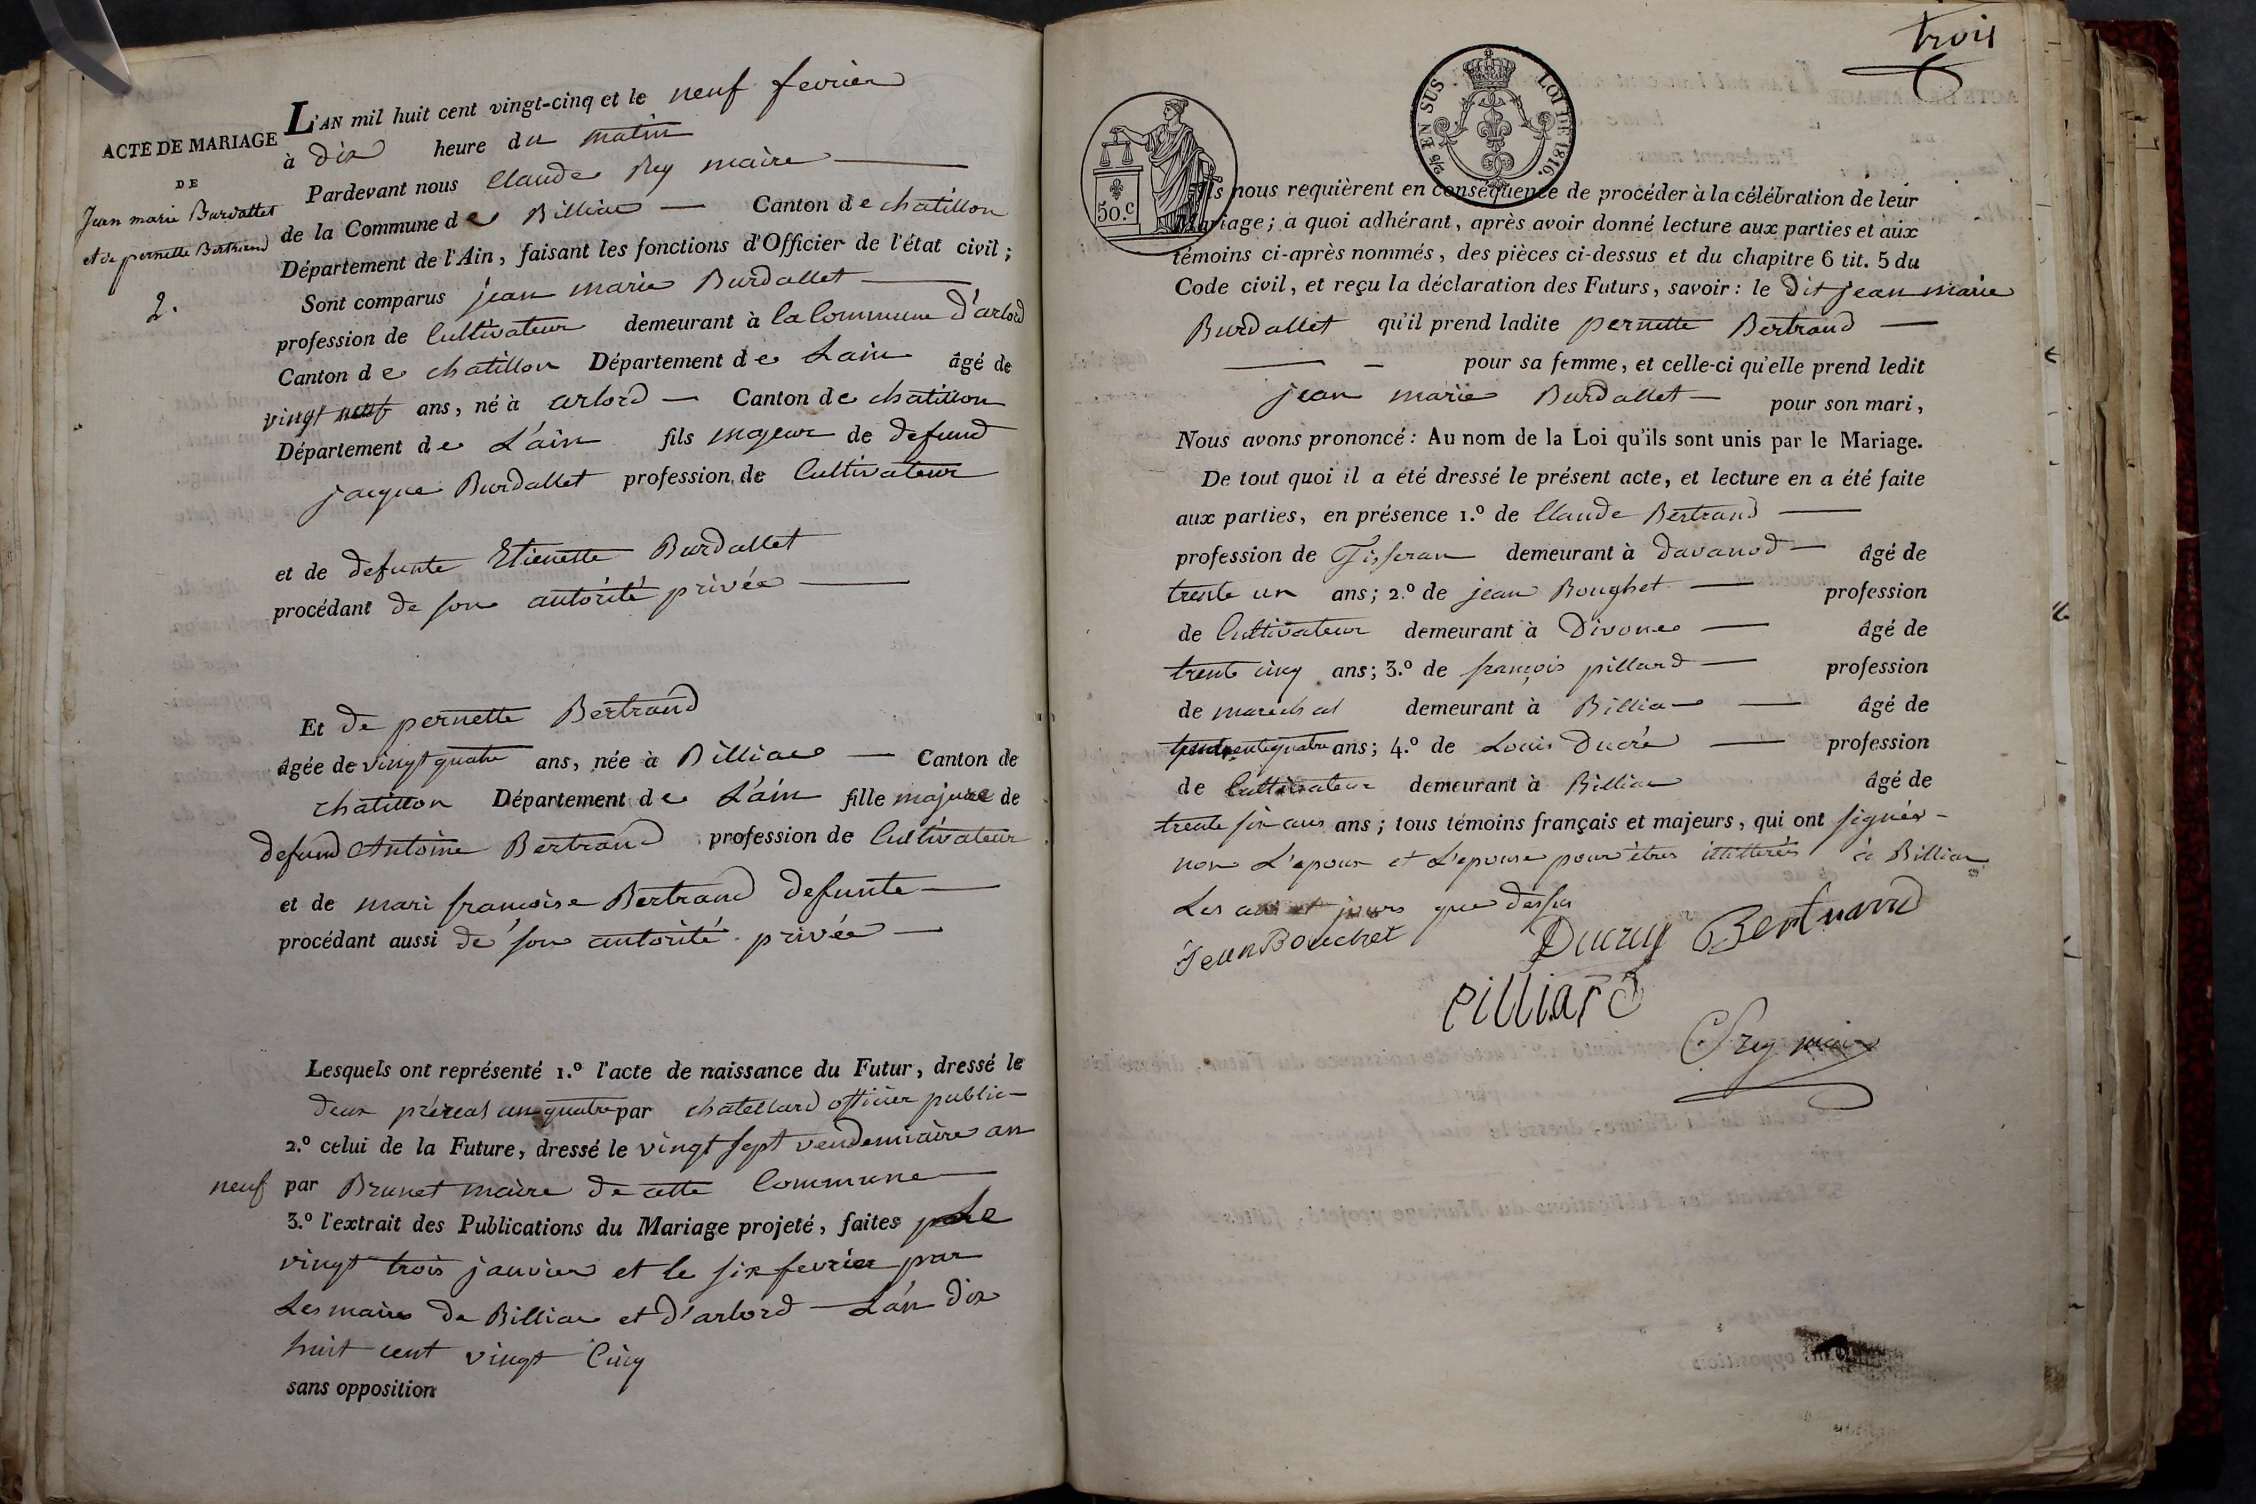 ACTE DE MARIAGE
DE
Jean marie Burdallet
et de pernette Bertrand
2.
L'AN mil huit cent vingt-cinq et le neuf fevrier
à dix heure du matin
Pardevant nous Claude Rey maire
de la Commune de Billiac Canton de chatillon
Département de l'Ain, faisant les fonctions d'Officier de l'état civil;
Sont comparus jean marie Burdallet
profession de Cultivateur demeurant à la Commune d'arlod
Canton de chatillon Département de Lain âgé de
vingt neuf ans, né à arlord Canton de chatillon
Département de L'ain fils majeur de defund
jacque Burdallet profession de Cultivateur
et de defunte Etienette Burdallet
procédant de son autorité privée
Et de pernette Bertrand
âgée de vingt quatre ans, née à Billiac Canton de
chatillon Département de L'ain fille majure de
defund Antoine Bertrand profession de Cultivateur
et de mari francoise Bertrand defunte
procédant aussi de son autorité privée
Lesquels ont représenté 1.º l'acte de naissance du Futur, dressé le
deux préreal an quatre par chatellard officier public
2.º celui de la Future, dressé le vingt sept vendemiaire an
neuf par Brunet maire de cette Commune
3.º l'extrait des Publications du Mariage projeté, faites le
vingt trois janvier et le six fevrier par
Les maires de Billiac et d'arlord L'an dix
huit cent vingt Cinq
sans opposition
trois
50.C
2/5 EN SUS LOI DE 1816.
Ils nous requièrent en conséquence de procéder à la célébration de leur
Mariage; à quoi adhérant, après avoir donné lecture aux parties et aux
témoins ci-après nommés, des pièces ci-dessus et du chapitre 6 tit. 5 du
Code civil, et reçu la déclaration des Futurs, savoir: le dit jean marie
Burdallet qu'il prend ladite pernette Bertrand
pour sa femme, et celle-ci qu'elle prend ledit
jean marie Burdallet pour son mari,
Nous avons prononcé: Au nom de la Loi qu'ils sont unis par le Mariage.
De tout quoi il a été dressé le présent acte, et lecture en a été faite
aux parties, en présence 1.º de Claude Bertrand
profession de Tisseran demeurant à davanod âgé de
trente un ans; 2.º de jean Boughet profession
de Cultivateur demeurant à Divone âgé de
trente cinq ans; 3.º de françois pillard profession
de marechal demeurant à Billiac âgé de
trente quatre ans; 4.º de Louis Ducré profession
de Cultivateur demeurant à Billiac âgé de
trente six ans ans; tous témoins français et majeurs, qui ont signés
non L'epoux et L'epouse pour êtres illitterés à Billiac
Les an et jours que dessus
Jean Bouchet Ducruy Bertrand
Pilliard
C Rey maire